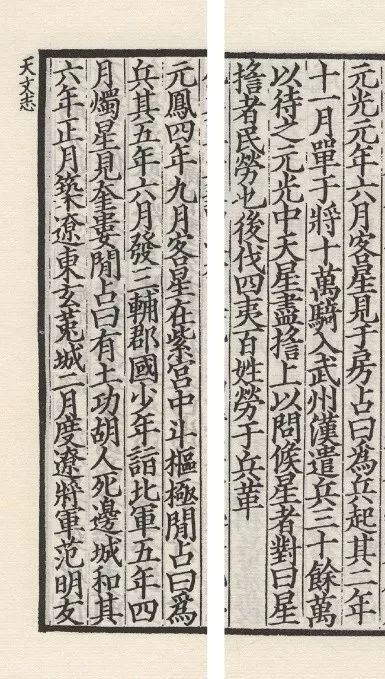 元光元年六月客星見于房占曰為兵起其二年
十一月單于將十萬騎入武州漢遣兵三十餘萬
以待之元光中天星盡搖上以問候星者對曰星
搖者民勞也後伐四夷百姓勞于兵革
元鳳四年九月客星在紫宮中斗樞極閒占曰為
兵其五年六月發三輔郡國少年詣北軍五年四
月燭星見奎婁閒占曰有土功胡人死邊城和其
六年正月築遼東玄菟城二月度遼將軍范明友
天文志